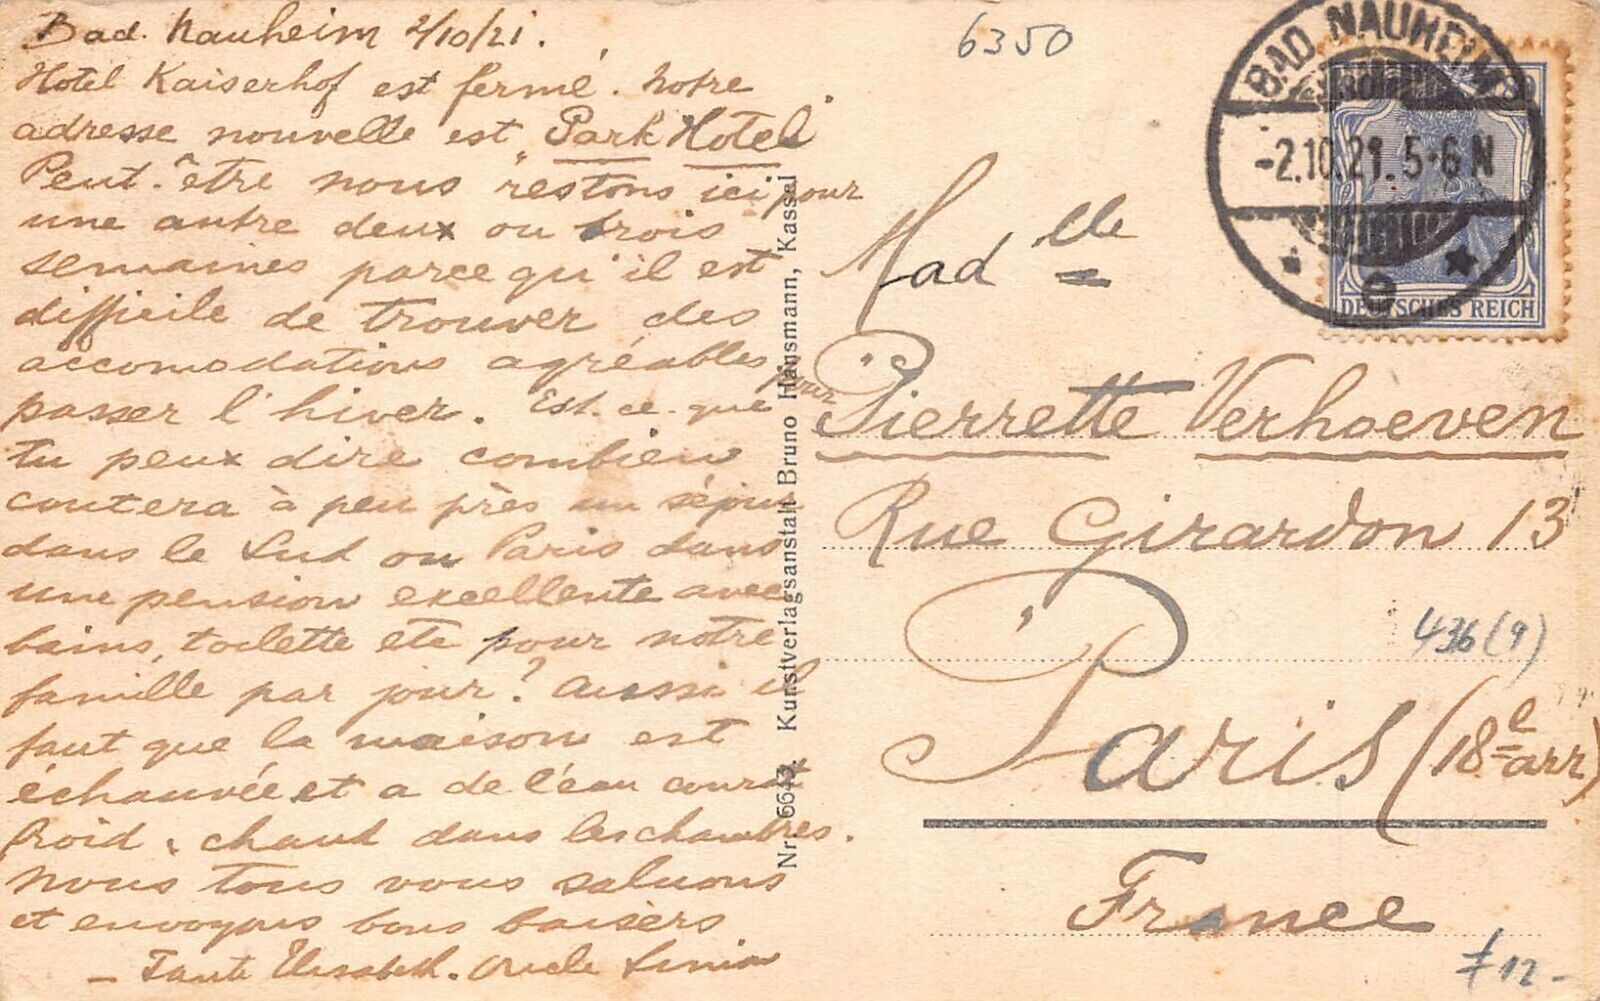 Bad. Nauheim 2/10/21.
Hotel Kaiserhof est fermé. Notre
adresse nouvelle est "Park Hotel"
Peut-être nous restons ici pour
une autre deux ou trois
semaines parce qu'il est
difficile de trouver des
accomodations agréables pour
passer l'hiver. Est-ce-que
tu peux dire combien
coutera à peu près un séjour
dans le Sud ou Paris dans
une pension excellente avec
bains, toilette etc pour notre
famille par jour? Aussi il
faut que la maison est
échauvée et a de l'eau courat
froid, chaud dans les chambres.
Nous tous vous saluons
et envoyons bons baisèrs
- Tante Elisabeth. Oncle
6350
BAD NAUHEIM
-2.10.21. 5-6 N
* e *
DEUTSCHES REICH
Madelle
Pierrette Verhoeven
Rue Girardon 13
436 (9)
Paris (18e arr)
France
12-
Nr. 6643. Kunstverlagsanstalt Bruno Hansmann, Kassel